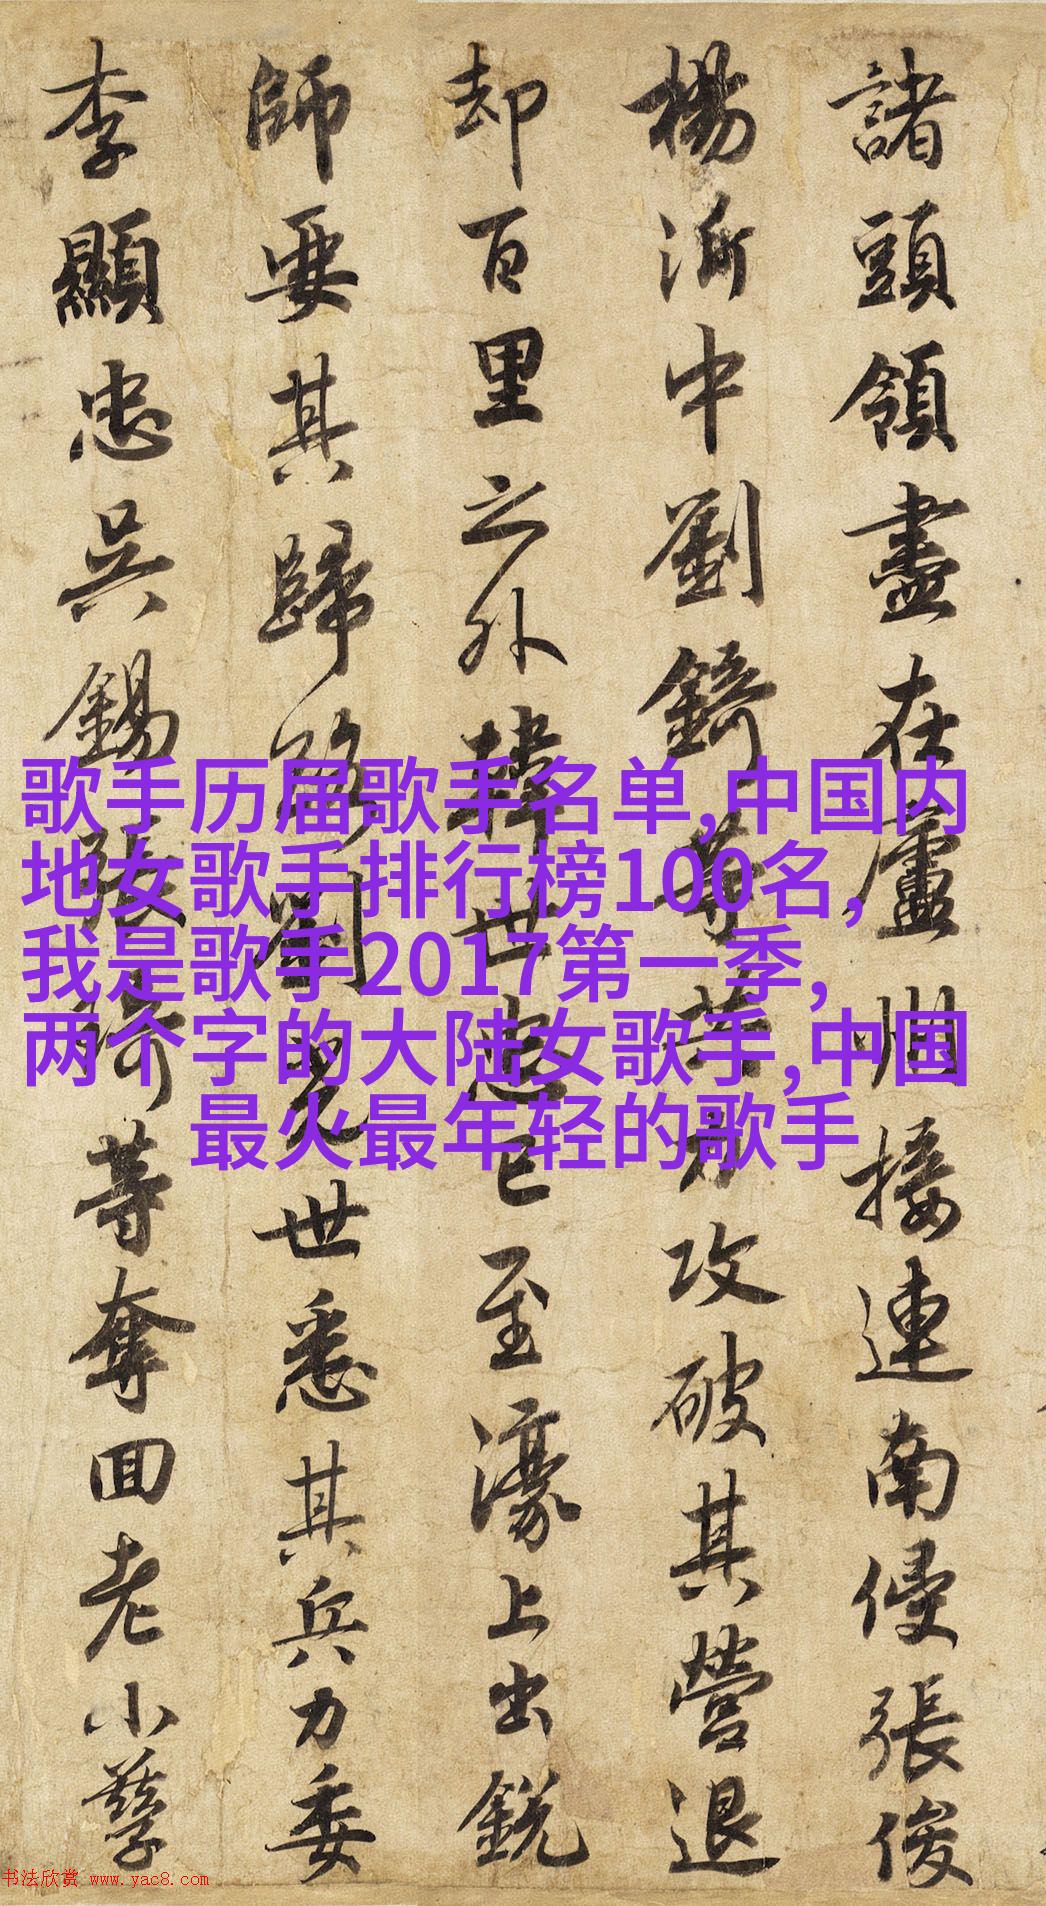 諸頭領盡在廬州接連南侵張俊
楊沂中劉錡等共力攻破其營退
却百里之外韓世忠已至濠上出銳
師要其歸路劉光世悉其兵力委
李顯忠吳錫張琦等奪回老小孳
歌手历届歌手名单,中国内
地女歌手排行榜100名,
我是歌手2017第一季,
两个字的大陆女歌手,中国
最火最年轻的歌手
书法欣赏 www.yac8.com